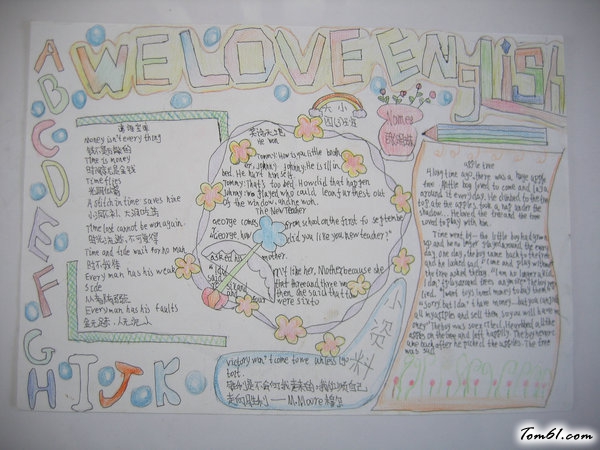 WE LOVE ENglish
A
B
C
D
E
F
G
H I J K
Money isn't everything
Time is money
Time flies
光阴似箭
A stitch in time saves nine
Time lost cannot be won again.
时机流逝,不可复得
Time and tide wait for no man
时不我待
Every man has his weak
side
人皆有弱点
Every man has his faults
金无足赤,人无完人
He won
Tommy: How is you little broth
er, Johnny? Johnny: He is ill in
bed. He hurt himself.
Tommy: That's too bed. How did that happen
Johnny: We played who could lean furthest out
of the window, and he won.
The New Teacher
George comes from school on the first of september
"George, how did you like you new teacher?"
asked his mother.
"I did my like her, Mother because she
said that three and three were
six and then she said that
four were sixto
Victory won't come to me unless I go
to it.
胜利是不会向我走来的,我必须自己
走向胜利 ——M.Moore 穆尔
小资料
大小
Name:
apple tree
A long time ago, there was a huge apple
tree. A little boy loved to come and lay a
around it every day. He climbed to the tree
top ate the apples, took a nap under the
shadow... He loved the tree and the tree
loved to play with him.
Time went by... the little boy had grown
up and he no longer played around the every
day. One day, the boy came back to the tree
and he looked sad. "Come and play with me"
the tree asked the boy. "I am no longer a kid,
I don't play around trees any more" the boy rep
lied. "I want toys. I need money to buy them."
"sorry but I don't have money... but you can pick
all my apples and sell them. So you will have m
oney." The boy was so excited. He grabbed all the
apples on the tree and left happily. The boy never c
ame back after he picked the apples. The tree
was sad.
Tom61.com